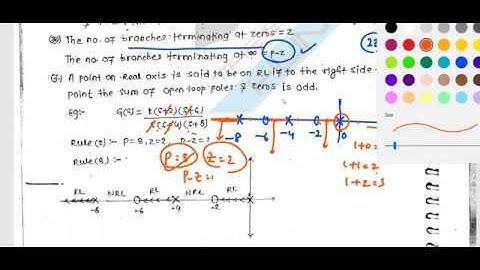 (b) The no. of branches terminating at zeros = z
The no. of branches terminating at ∞ = P-Z
(c) A point on real axis is said to be on RL if to the right side
point the sum of open loop poles & zeros is odd.
Eg:- G(s) = K(s+2)(s+6) / s(s+4)(s+8)
-8 -6 -4 -2 0
1+0 =
1+1 = 2
1+2 = 3
Rule(2) :- P=3, Z=2
P=3 Z=2
Rule(3) :-
P-Z=1
RL NRL RL NRL RL
-8 -6 -4 -2